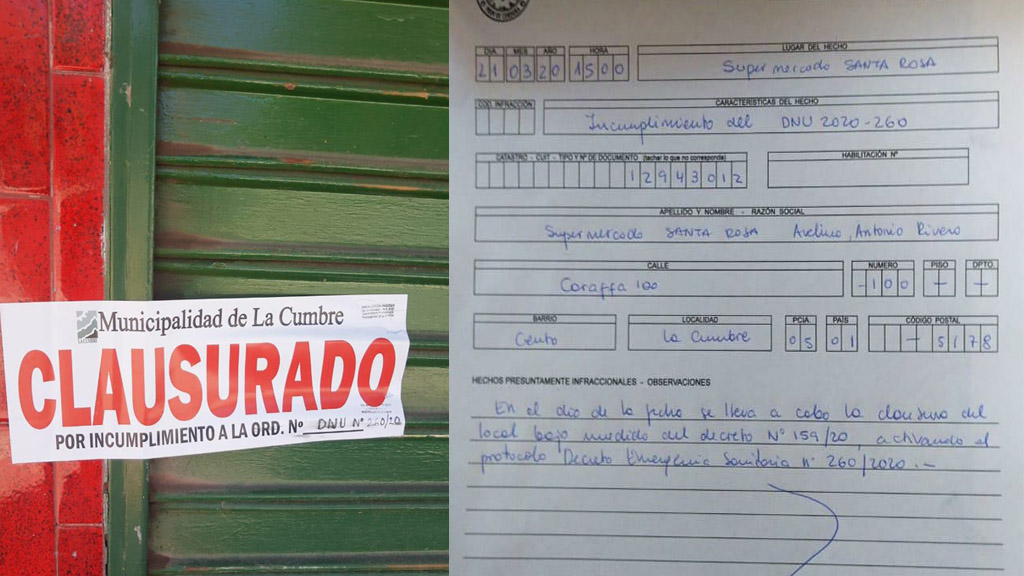 Municipalidad de La Cumbre
LA CUMBRE
CLAUSURADO
POR INCUMPLIMIENTO A LA ORD. Nº DNU Nº 260/20
DIA MES AÑO HORA
21 03 20 1500
LUGAR DEL HECHO
Supermercado SANTA ROSA
COD. INFRACCIÓN
CARACTERISTICAS DEL HECHO
Incumplimiento del DNU 2020-260
CATASTRO - CUIT - TIPO Y Nº DE DOCUMENTO (tachar lo que no corresponda)
12943012
HABILITACIÓN Nº
APELLIDO Y NOMBRE - RAZÓN SOCIAL
Supermercado SANTA ROSA Avelino, Antonio Rivero
CALLE NUMERO PISO DPTO.
Caraffa 100 -100 - -
BARRIO LOCALIDAD PCIA. PAÍS CÓDIGO POSTAL
Cento La Cumbre 05 01 - 5178
HECHOS PRESUNTAMENTE INFRACCIONALES - OBSERVACIONES
En el dia de la fecha se lleva a cabo la clausura del
local bajo medida del decreto Nº 159/20, activando el
protocolo Decreto Emergencia Sanitaria nº 260/2020.-